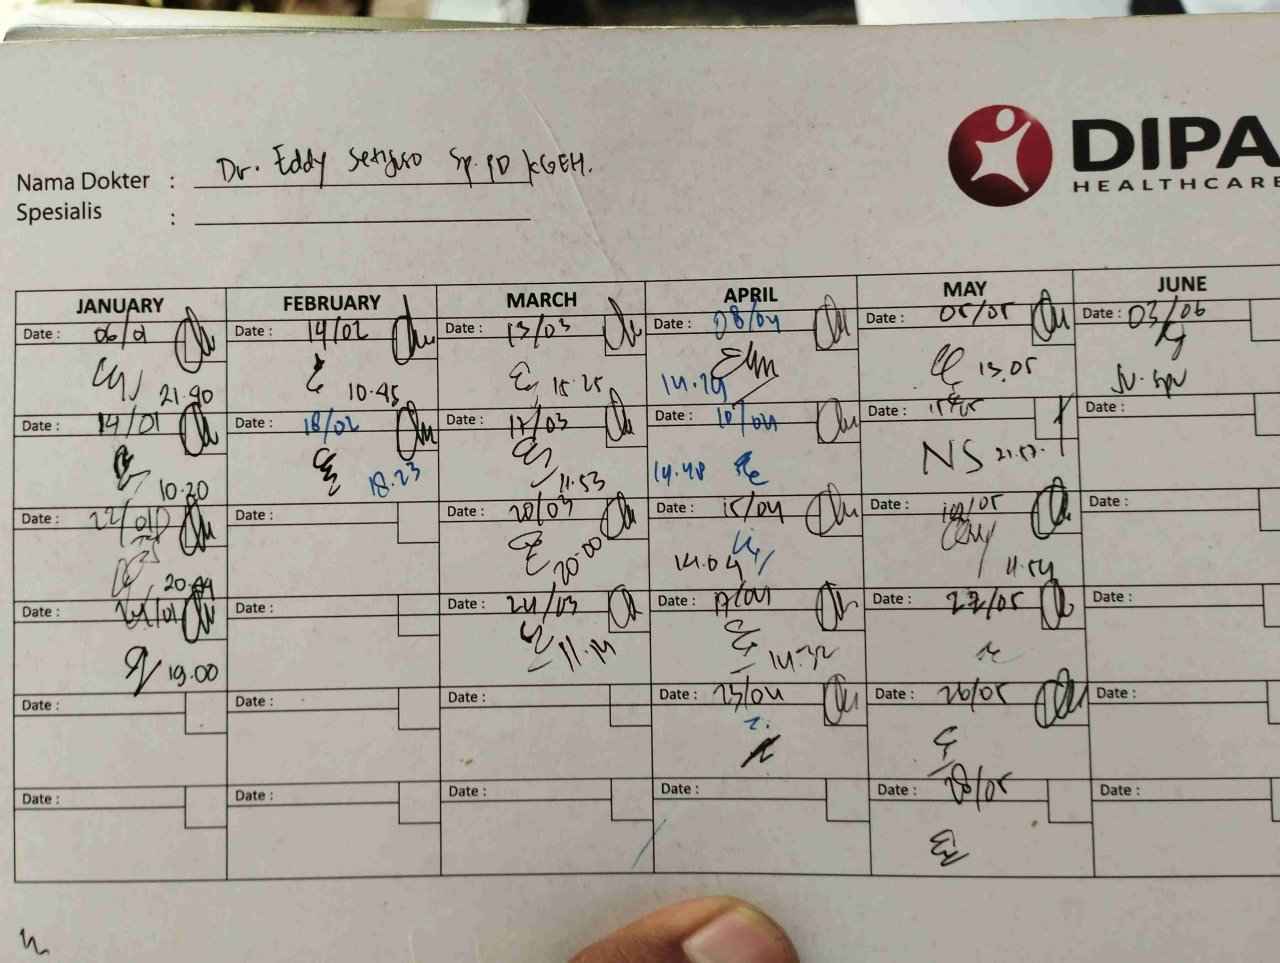 DIPA
HEALTHCARE
Nama Dokter : Dr. Eddy Sp.PD KGEH.
Spesialis :
JANUARY FEBRUARY MARCH APRIL MAY JUNE
Date : 06/01 Date : 14/02 Date : 13/03 Date : 08/04 Date : 05/05 Date : 03/06
21.40 10.45 15.25 14.29 13.05
Date : 14/01 Date : 18/02 Date : 17/03 Date : 10/04 Date : 15/05 Date :
10.20 18.23 11.53 14.48 NS 21.57
Date : 22/01 Date : Date : 20/03 Date : 15/04 Date : 19/05 Date :
20.49 20.00 14.04 11.54
Date : 24/01 Date : Date : 24/03 Date : 17/04 Date : 22/05 Date :
19.00 11.14 14.32
Date : Date : Date : Date : 23/04 Date : 26/05 Date :
Date : Date : Date : Date : Date : 28/05 Date :